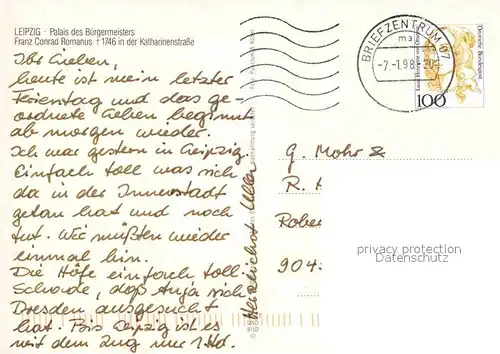 LEIPZIG · Palais des Bürgermeisters
Franz Conrad Romanus † 1746 in der Katharinenstraße
Ihr Lieben,
heute ist mein letzter
Ferientag und das ge-
ordnete Leben beginnt
ab morgen wieder.
Ich war gestern in Leipzig.
Einfach toll was sich
da in der Innenstadt
getan hat und noch
tut. Wir müßten wieder
einmal hin.
Die Höfe einfach toll.
Schade, daß Anja sich
Dresden ausgesucht
hat. Bis Leipzig ist es
mit dem Zug nur 1 Std.
Herzlichst
BRIEFZENTRUM 07
-7.-1.98-20
Deutsche Bundespost
100
G. Mohr &
R.
Rober
904
privacy protection
Datenschutz